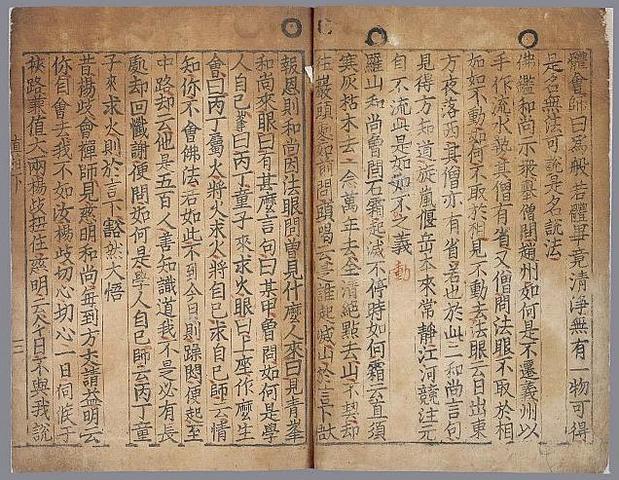 體會師曰爲般若體畢竟清淨無有一物可得
是名無法可說是名說法
佛鑑和尚示衆擧僧問趙州如何是不遷義州以
手作流水勢其僧有省又僧問法眼不取於相
如如不動如何不取於相見不動去法眼云日出東
方夜落西其僧亦有省若也於此二和尚言句
見得方知道旋嵐偃岳本來常靜江河競注元
自不流此是如如不義
動
羅山和尚曾問石霜起滅不停時如何霜云直須
寒灰枯木去一念萬年去全清絶點去山不契却
往巖頭處如前問頭喝云是誰起滅山於言下
報恩則和尚因法眼問曾見什麽人來曰見青峯
和尚來眼曰有甚麽言句曰某甲曾問如何是學
人自己峯曰丙丁童子來求火眼曰上座作麽生
會曰丙丁屬火將火求火將自己求自己師云情
知你不會佛法若如此不到今日則躁悶便起至
中路却云他是五百人善知識道我不是必有長
處却回懺謝便問如何是學人自己師云丙丁童
子來求火則於言下豁然大悟
昔楊歧會禪師見慈明和尚每到方丈請益明云
你自會去我不如汝楊歧切心切心一日伺候于
狹路兼值大雨楊歧扭住慈明云今日不與我說
直指下